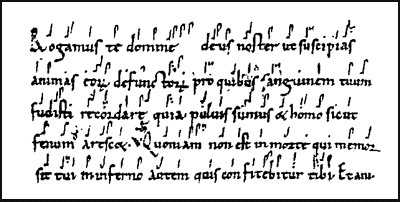 Rogamus te domine deus noster ut suscipias
animas eorum defunctorum pro quibus sanguinem tuum
fudisti recordare quia pulvis sumus & homo sicut
fenum
Quoniam non est in morte qui memor
sit tui in inferno autem quis confitebitur tibi Et an